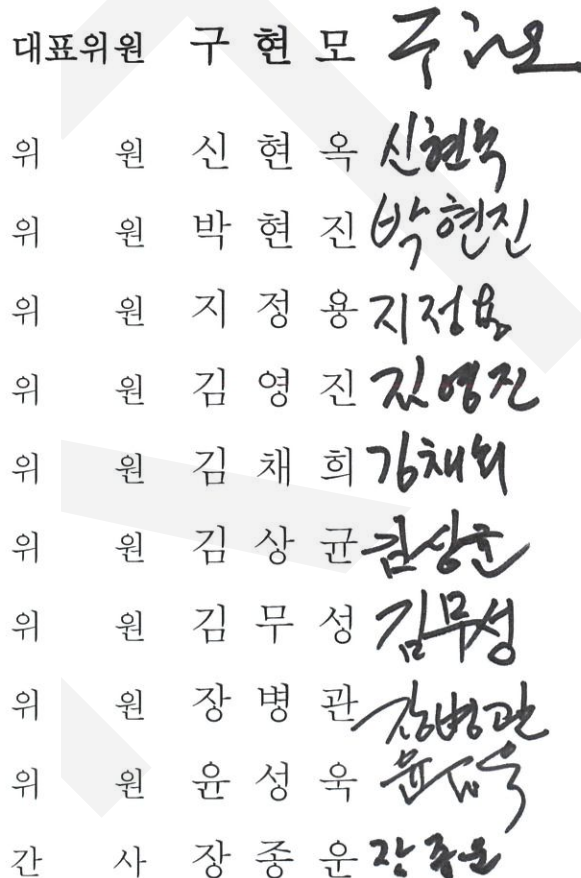 대표위원 구 현 모 구현모
위 원 신 현 옥 신현옥
위 원 박 현 진 박현진
위 원 지 정 용 지정용
위 원 김 영 진 김영진
위 원 김 채 희 김채희
위 원 김 상 균 김상균
위 원 김 무 성 김무성
위 원 장 병 관 장병관
위 원 윤 성 욱 윤성욱
간 사 장 종 운 장종운